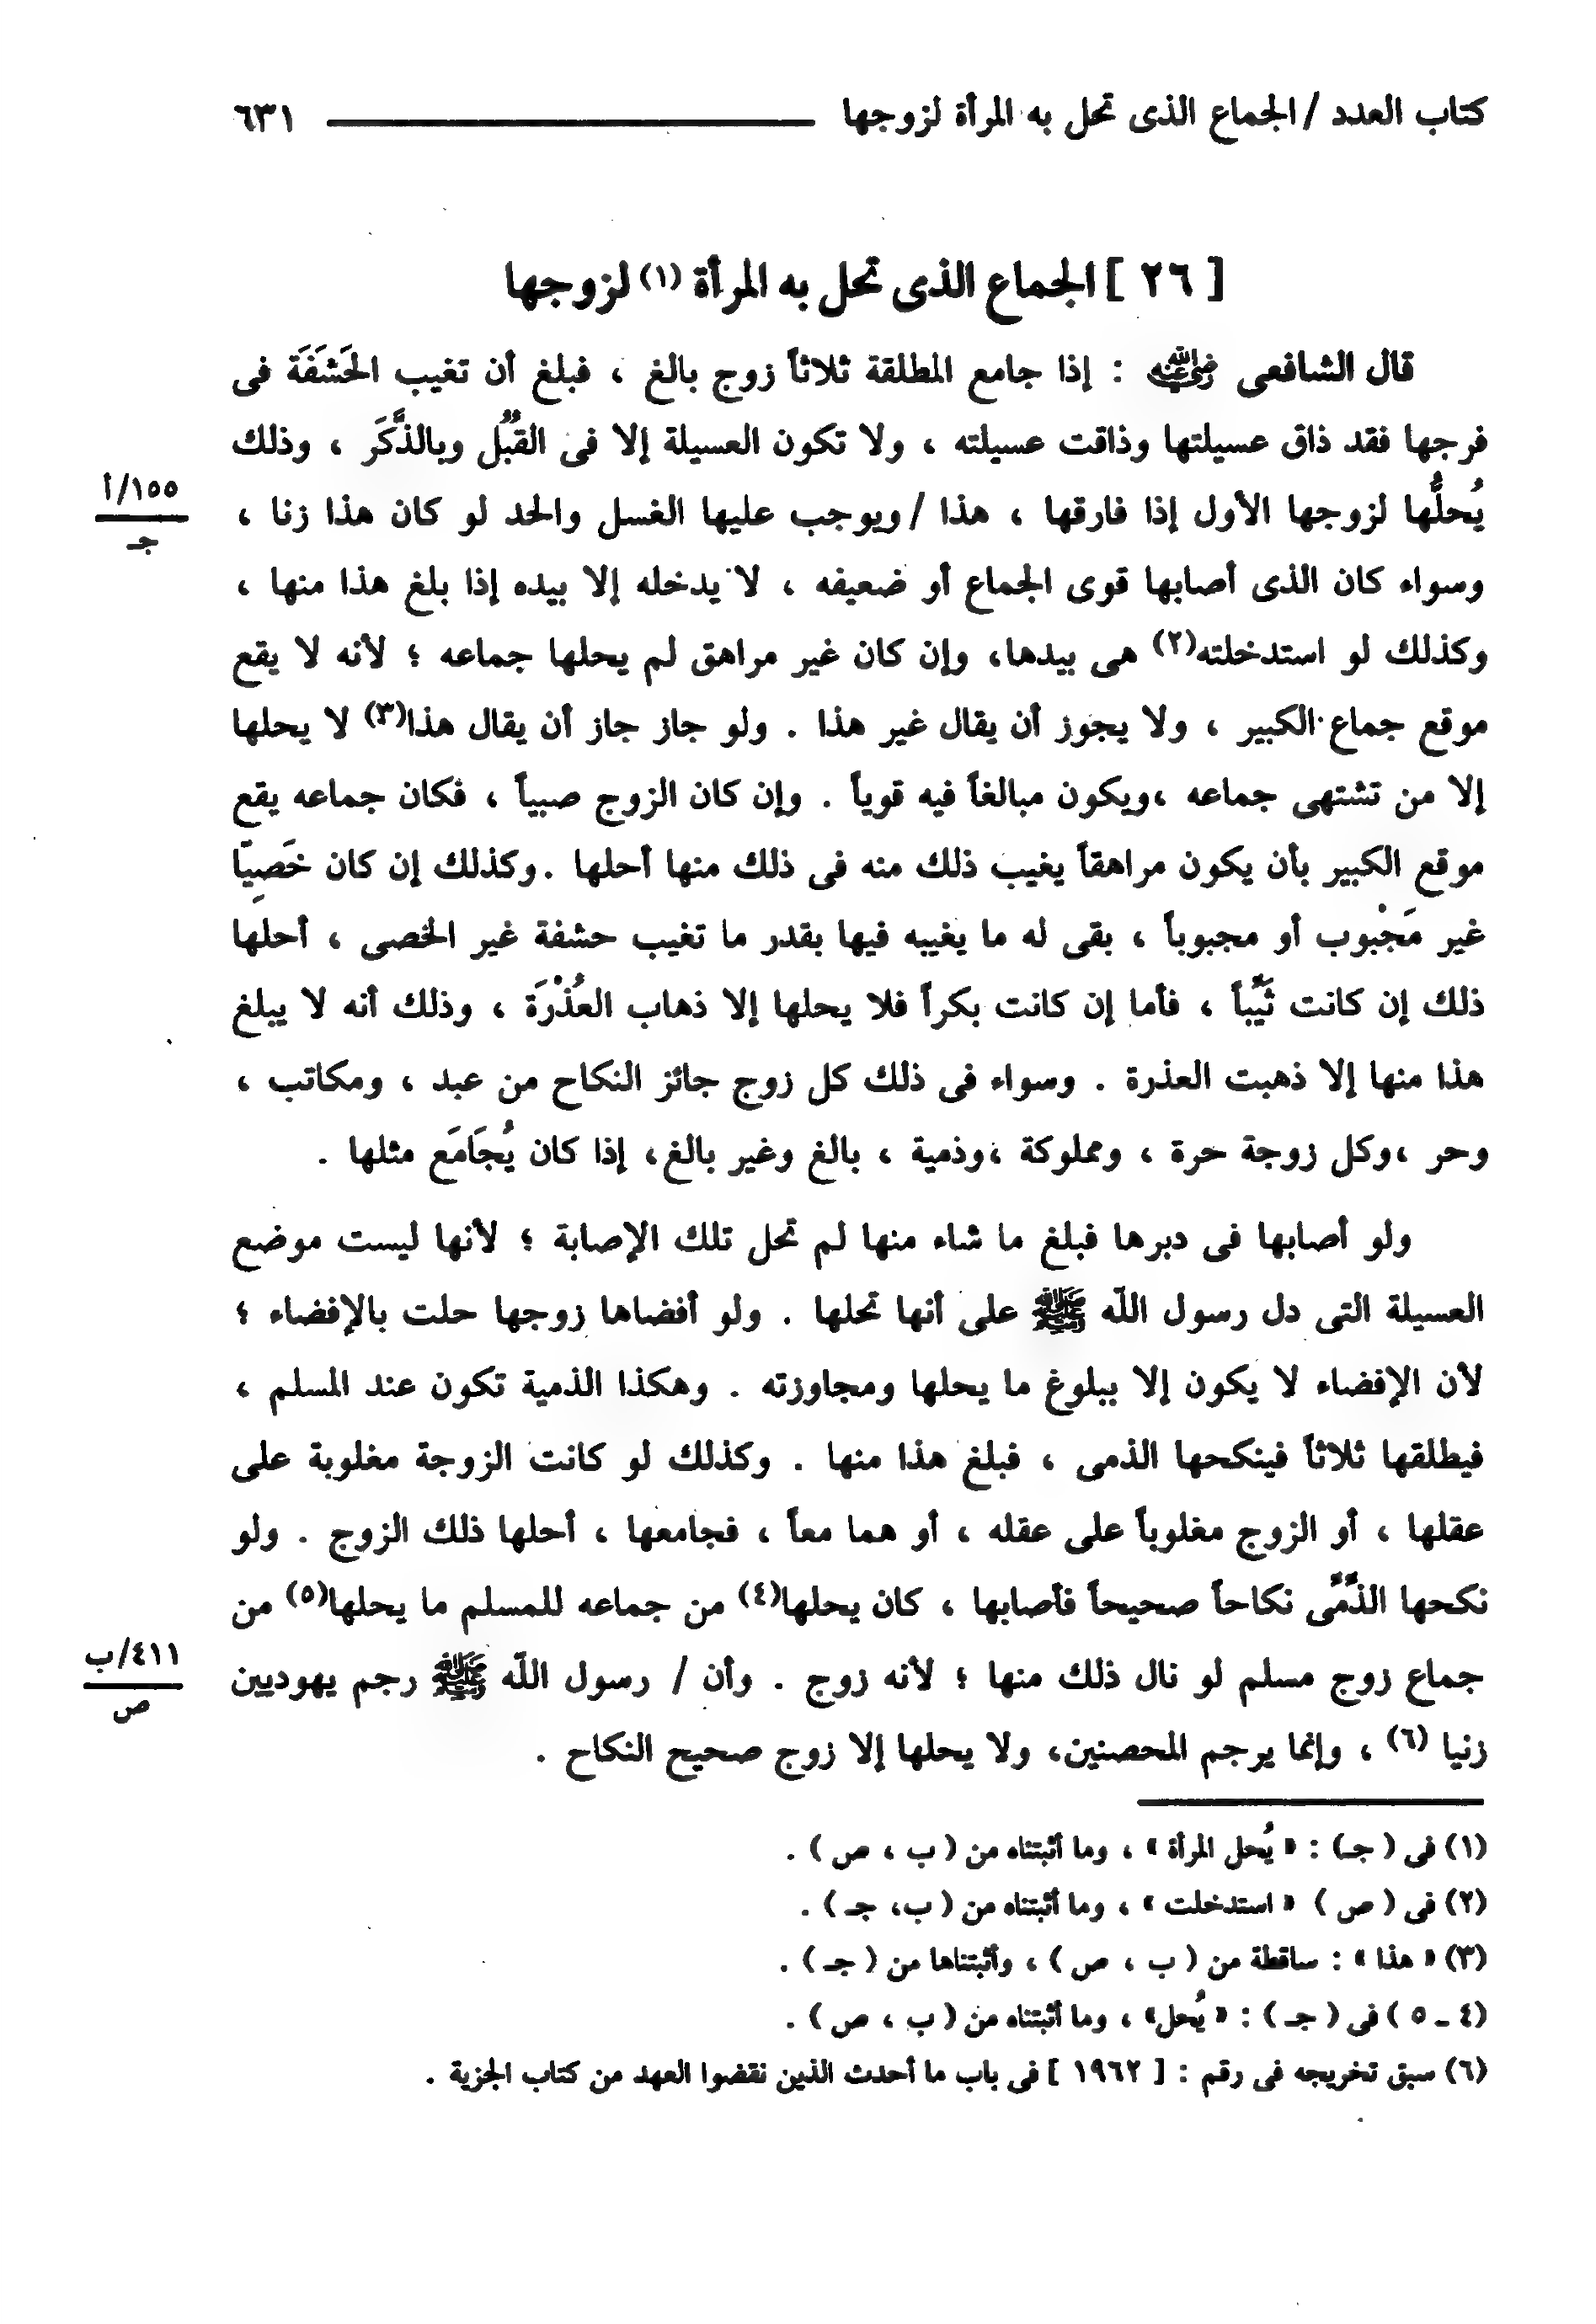 كتاب العدد / الجماع الذى تحل به المرأة لزوجها ٦٣١
[ ٢٦ ] الجماع الذى تحل به المرأة (١) لزوجها
قال الشافعى رضي الله عنه : إذا جامع المطلقة ثلاثاً زوج بالغ ، فبلغ أن تغيب الحَشَفَة فى
فرجها فقد ذاق عسيلتها وذاقت عسيلته ، ولا تكون العسيلة إلا فى القُبُل وبالذَّكَر ، وذلك
يُحلُّها لزوجها الأول إذا فارقها ، هذا / ويوجب عليها الغسل والحد لو كان هذا زنا ،
١٥٥/أ
جـ
وسواء كان الذى أصابها قوى الجماع أو ضعيفه ، لا يدخله إلا بيده إذا بلغ هذا منها ،
وكذلك لو استدخلته(٢) هى بيدها، وإن كان غير مراهق لم يحلها جماعه ؛ لأنه لا يقع
موقع جماع الكبير ، ولا يجوز أن يقال غير هذا . ولو جاز جاز أن يقال هذا(٣) لا يحلها
إلا من تشتهى جماعه ،ويكون مبالغاً فيه قوياً . وإن كان الزوج صبياً ، فكان جماعه يقع
موقع الكبير بأن يكون مراهقاً يغيب ذلك منه فى ذلك منها أحلها .وكذلك إن كان خَصِيّا
غير مَجْبوب أو مجبوباً ، بقى له ما يغيبه فيها بقدر ما تغيب حشفة غير الخصى ، أحلها
ذلك إن كانت ثَيِّباً ، فأما إن كانت بكراً فلا يحلها إلا ذهاب العُذْرَة ، وذلك أنه لا يبلغ
هذا منها إلا ذهبت العذرة . وسواء فى ذلك كل زوج جائز النكاح من عبد ، ومكاتب ،
وحر ،وكل زوجة حرة ، ومملوكة ،وذمية ، بالغ وغير بالغ، إذا كان يُجَامَع مثلها .
ولو أصابها فى دبرها فبلغ ما شاء منها لم تحل تلك الإصابة ؛ لأنها ليست موضع
العسيلة التى دل رسول الله ﷺ على أنها تحلها . ولو أفضاها زوجها حلت بالإفضاء ؛
لأن الإفضاء لا يكون إلا ببلوغ ما يحلها ومجاوزته . وهكذا الذمية تكون عند المسلم ،
فيطلقها ثلاثاً فينكحها الذمى ، فبلغ هذا منها . وكذلك لو كانت الزوجة مغلوبة على
عقلها ، أو الزوج مغلوباً على عقله ، أو هما معاً ، فجامعها ، أحلها ذلك الزوج . ولو
نكحها الذِّمِّى نكاحاً صحيحاً فأصابها ، كان يحلها(٤) من جماعه للمسلم ما يحلها(٥) من
جماع زوج مسلم لو نال ذلك منها ؛ لأنه زوج . وأن / رسول الله ﷺ رجم يهوديين
٤١١/ب
ص
زنيا (٦) ، وإنما يرجم المحصنين، ولا يحلها إلا زوج صحيح النكاح .
(١) فى ( جـ) : « يُحل المرأة » ، وما أثبتناه من ( ب ، ص ) .
(٢) فى ( ص ) « استدخلت » ، وما أثبتناه من ( ب، جـ ) .
(٣) « هذا » : ساقطة من ( ب ، ص ) ، وأثبتناها من ( جـ ) .
(٤ ـ ٥ ) فى ( جـ ) : « يُحل» ، وما أثبتناه من ( ب ، ص ) .
(٦) سبق تخريجه فى رقم : [ ١٩٦٢ ] فى باب ما أحدث الذين نقضوا العهد من كتاب الجزية .